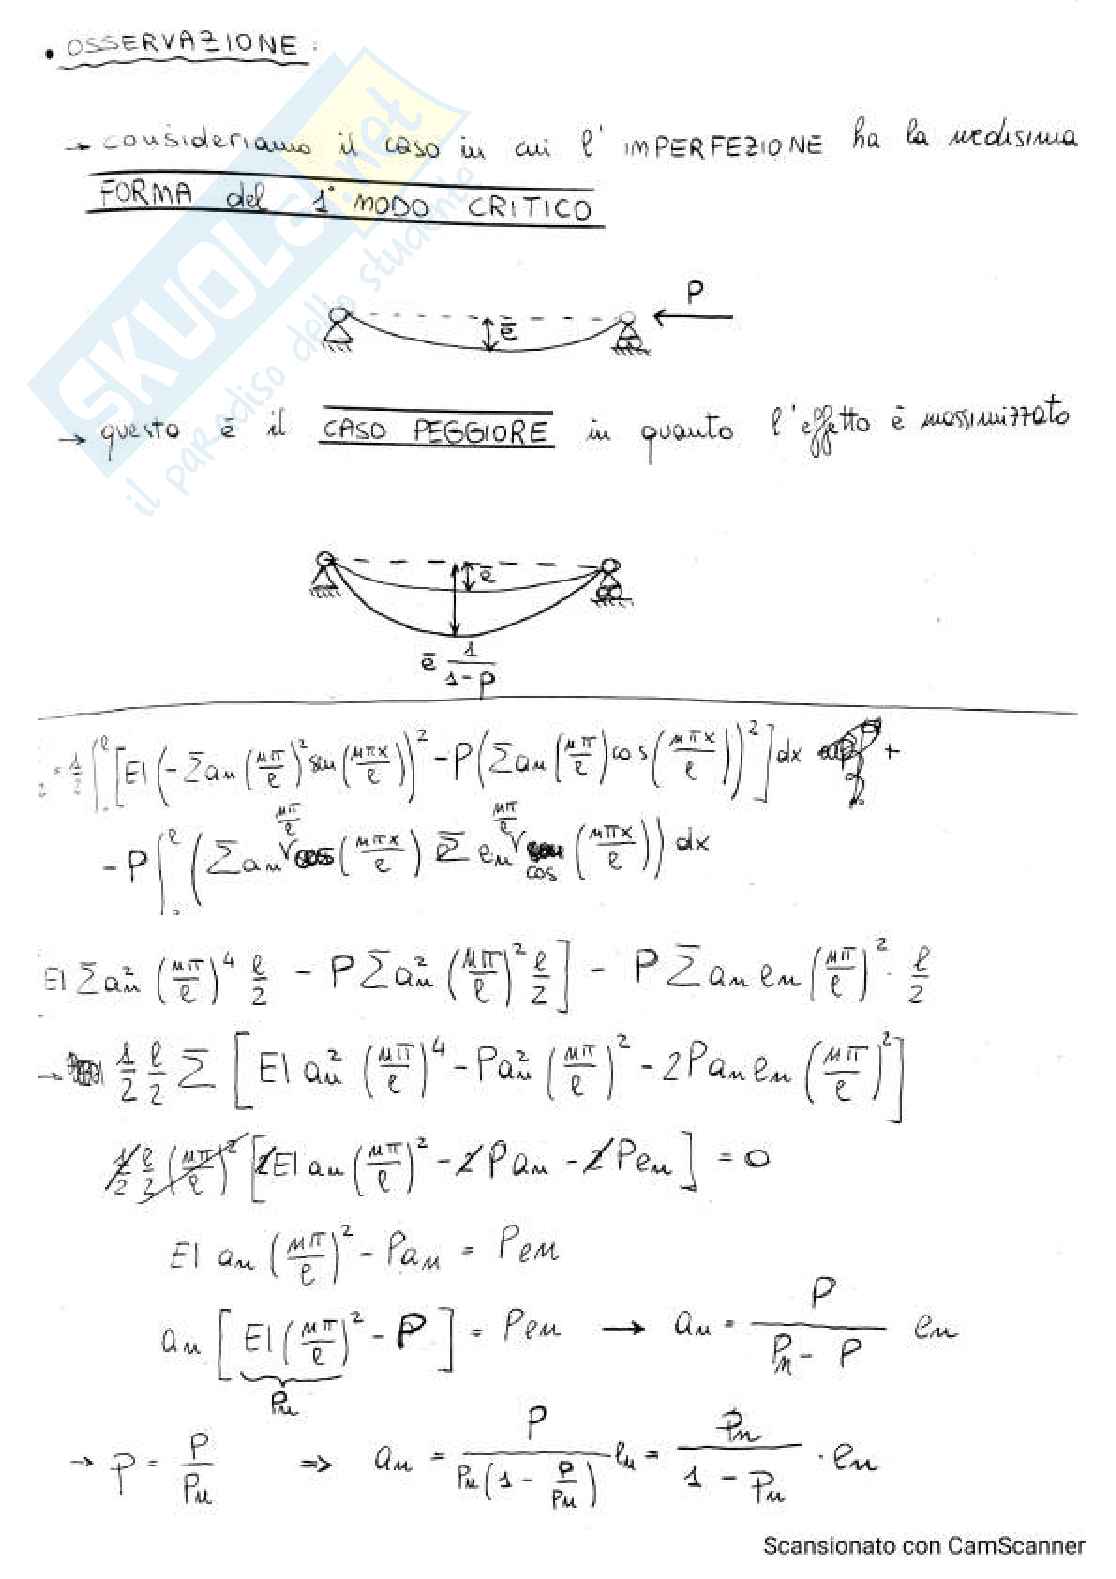 • OSSERVAZIONE :
→ consideriamo il caso in cui l' IMPERFEZIONE ha la medisima
FORMA del 1° MODO CRITICO
P
ē
→ questo è il CASO PEGGIORE in quanto l'effetto è massimizzato
ē
ē 1/(1-p)
= 1/2 ∫₀^ℓ [EI (-Σan (nπ/ℓ)² sen(nπx/ℓ))² - P(Σan (nπ/ℓ) cos(nπx/ℓ))²] dx +
- P ∫₀^ℓ (Σan nπ/ℓ cos(nπx/ℓ) Σ en nπ/ℓ cos (nπx/ℓ)) dx
EI Σan² (nπ/ℓ)⁴ ℓ/2 - PΣan² (nπ/ℓ)² ℓ/2] - PΣan en (nπ/ℓ)² · ℓ/2
→ 1/2 ℓ/2 Σ [EI an² (nπ/ℓ)⁴ - Pan² (nπ/ℓ)² - 2Pan en (nπ/ℓ)²]
1/2 ℓ/2 (nπ/ℓ)² [2EI an (nπ/ℓ)² - 2Pan - 2Pen] = 0
EI an (nπ/ℓ)² - Pan = Pen
an [EI(nπ/ℓ)² - P] = Pen → an = P/(Pn - P) en
Pn
→ p = P/Pn ⇒ an = P/(Pn(1 - P/Pn)) en = pn/(1 - pn) · en
Scansionato con CamScanner
SKUOLA.net
il paradiso dello studente